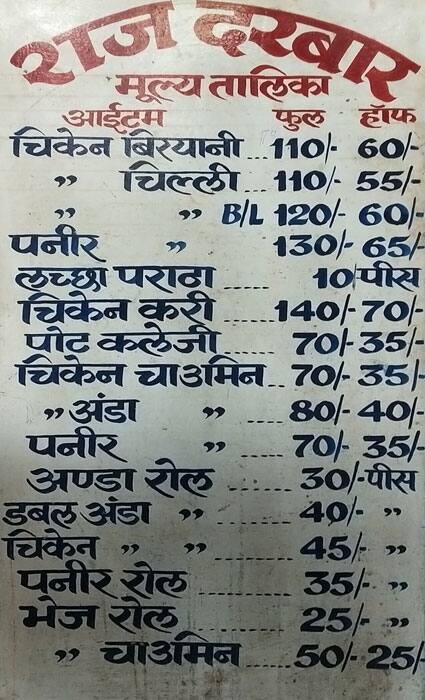 राज दरबार
मूल्य तालिका
आईटम फुल हॉफ
चिकेन बिरयानी ... 110/- 60/-
” चिल्ली ... 110/- 55/-
” ” B/L 120/- 60/-
पनीर ” 130/- 65/-
लच्छा पराठा .... 10 पीस
चिकेन करी ...... 140/- 70/-
पोट कलेजी ...... 70/- 35/-
चिकेन चाउमिन ... 70/- 35/-
” अंडा ” ..... 80/- 40/-
पनीर ” ..... 70/- 35/-
अण्डा रोल ...... 30/- पीस
डबल अंडा ” ..... 40/- ”
चिकेन ” ” ...... 45/- ”
पनीर रोल ........ 35/- ”
भेज रोल ........ 25/- ”
” चाउमिन ..... 50/- 25/-